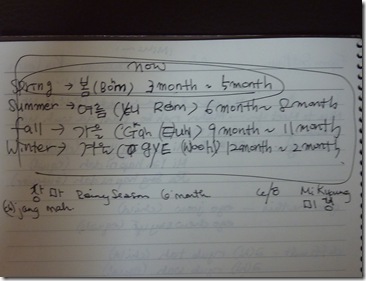 now
Spring → 봄 (Bŏm) 3 month ~ 5 month
Summer → 여름 (Yu Rŏm) 6 month ~ 8 month
fall → 가을 (Gah Euhl) 9 month ~ 11 month
Winter → 겨울 (GYE Wooh) 12 month ~ 2 month
장마 Rainy Season 6 month 6/8 Mi Kyung
jang mah 미경